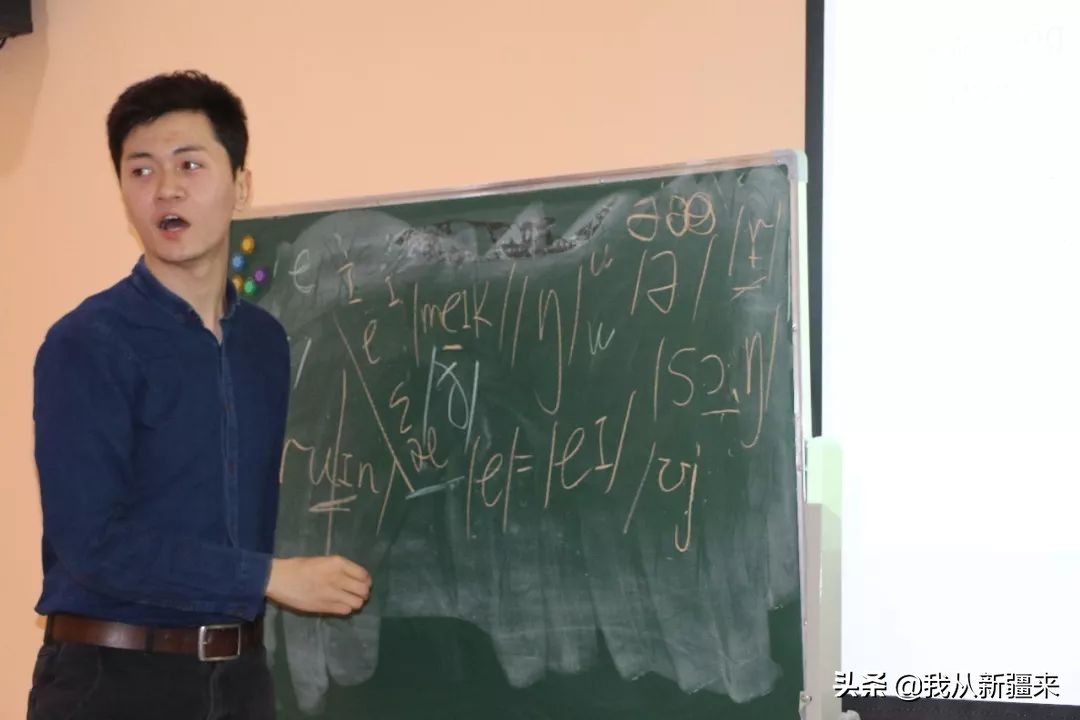 ə ə
e I i /meɪk/ /ŋ/ u /ə/ /r/
e u
ɛ /ɣ/ /sɔ,ŋ/
ruɪn/ æ /e/=/eɪ/ /ʊj
头条 @我从新疆来